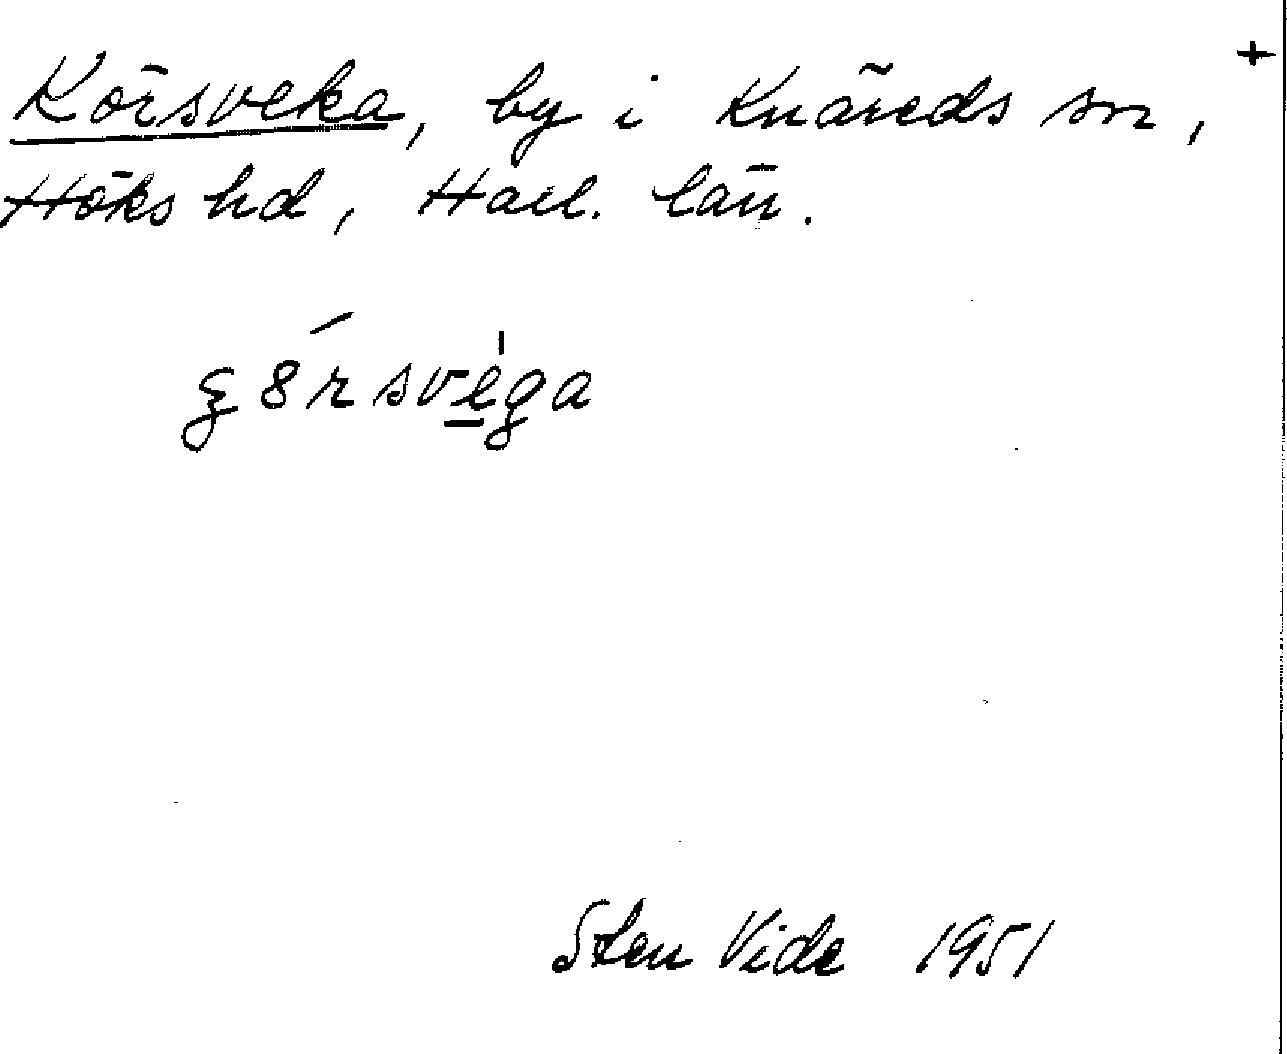 +
Körsveka, by i Knäreds sn,
Höks hd, Hall. län.
Sten Vide 1951